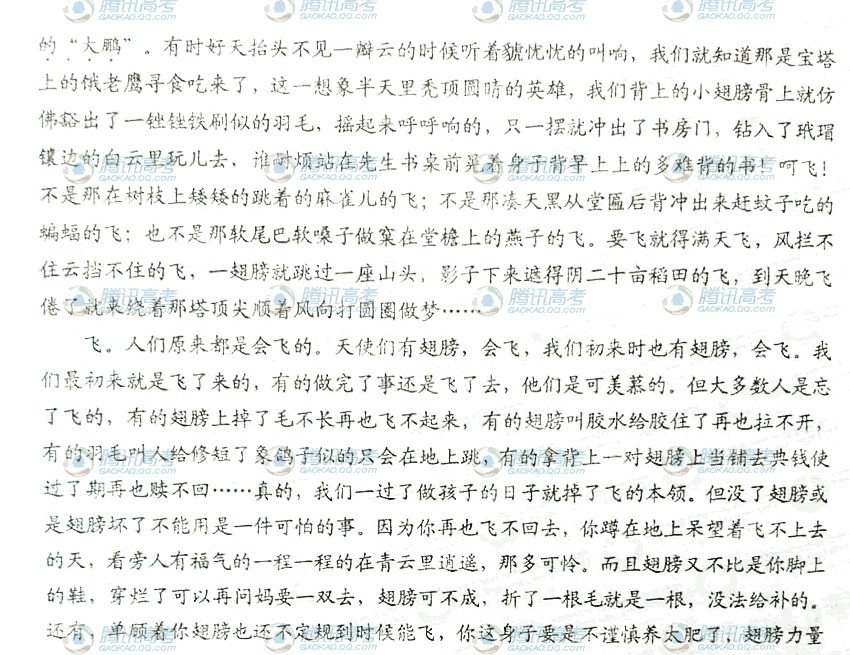 的“大鹏”。有时好天抬头不见一瓣云的时候听着猇忧忧的叫响，我们就知道那是宝塔
上的饿老鹰寻食吃来了，这一想象半天里秃顶圆睛的英雄，我们背上的小翅膀骨上就仿
佛豁出了一锉锉铁刷似的羽毛，摇起来呼呼响的，只一摆就冲出了书房门，钻入了玳瑁
镶边的白云里玩儿去，谁耐烦站在先生书桌前晃着身子背早上上的多难背的书！呵飞！
不是那在树枝上矮矮的跳着的麻雀儿的飞；不是那凑天黑从堂匾后背冲出来赶蚊子吃的
蝙蝠的飞；也不是那软尾巴软嗓子做窠在堂檐上的燕子的飞。要飞就得满天飞，风拦不
住云挡不住的飞，一翅膀就跳过一座山头，影子下来遮得阴二十亩稻田的飞，到天晚飞
倦了就来绕着那塔顶尖顺着风向打圆圈做梦……
飞。人们原来都是会飞的。天使们有翅膀，会飞，我们初来时也有翅膀，会飞。我
们最初来就是飞了来的，有的做完了事还是飞了去，他们是可羡慕的。但大多数人是忘
了飞的，有的翅膀上掉了毛不长再也飞不起来，有的翅膀叫胶水给胶住了再也拉不开，
有的羽毛叫人给修短了象鸽子似的只会在地上跳，有的拿背上一对翅膀上当铺去典钱使
过了期再也赎不回……真的，我们一过了做孩子的日子就掉了飞的本领。但没了翅膀或
是翅膀坏了不能用是一件可怕的事。因为你再也飞不回去，你蹲在地上呆望着飞不上去
的天，看旁人有福气的一程一程的在青云里逍遥，那多可怜。而且翅膀又不比是你脚上
的鞋，穿烂了可以再问妈要一双去，翅膀可不成，折了一根毛就是一根，没法给补的。
还有，单顾着你翅膀也还不定规到时候能飞，你这身子要是不谨慎养太肥了，翅膀力量
腾讯高考
GAOKAO.QQ.COM